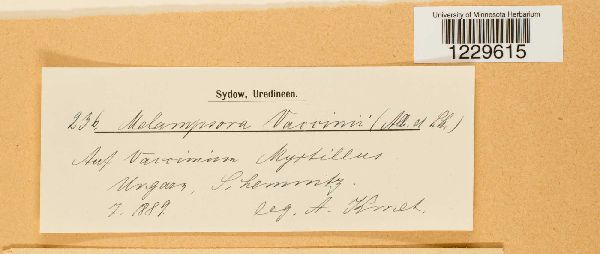 University of Minnesota Herbarium
1229615
Sydow, Uredineen.
236. Melampsora Vaccinii (Alb. et Sch.)
Auf Vaccinium Myrtillus
Ungarn, Schemnitz.
7. 1889. leg. A. Kmet.